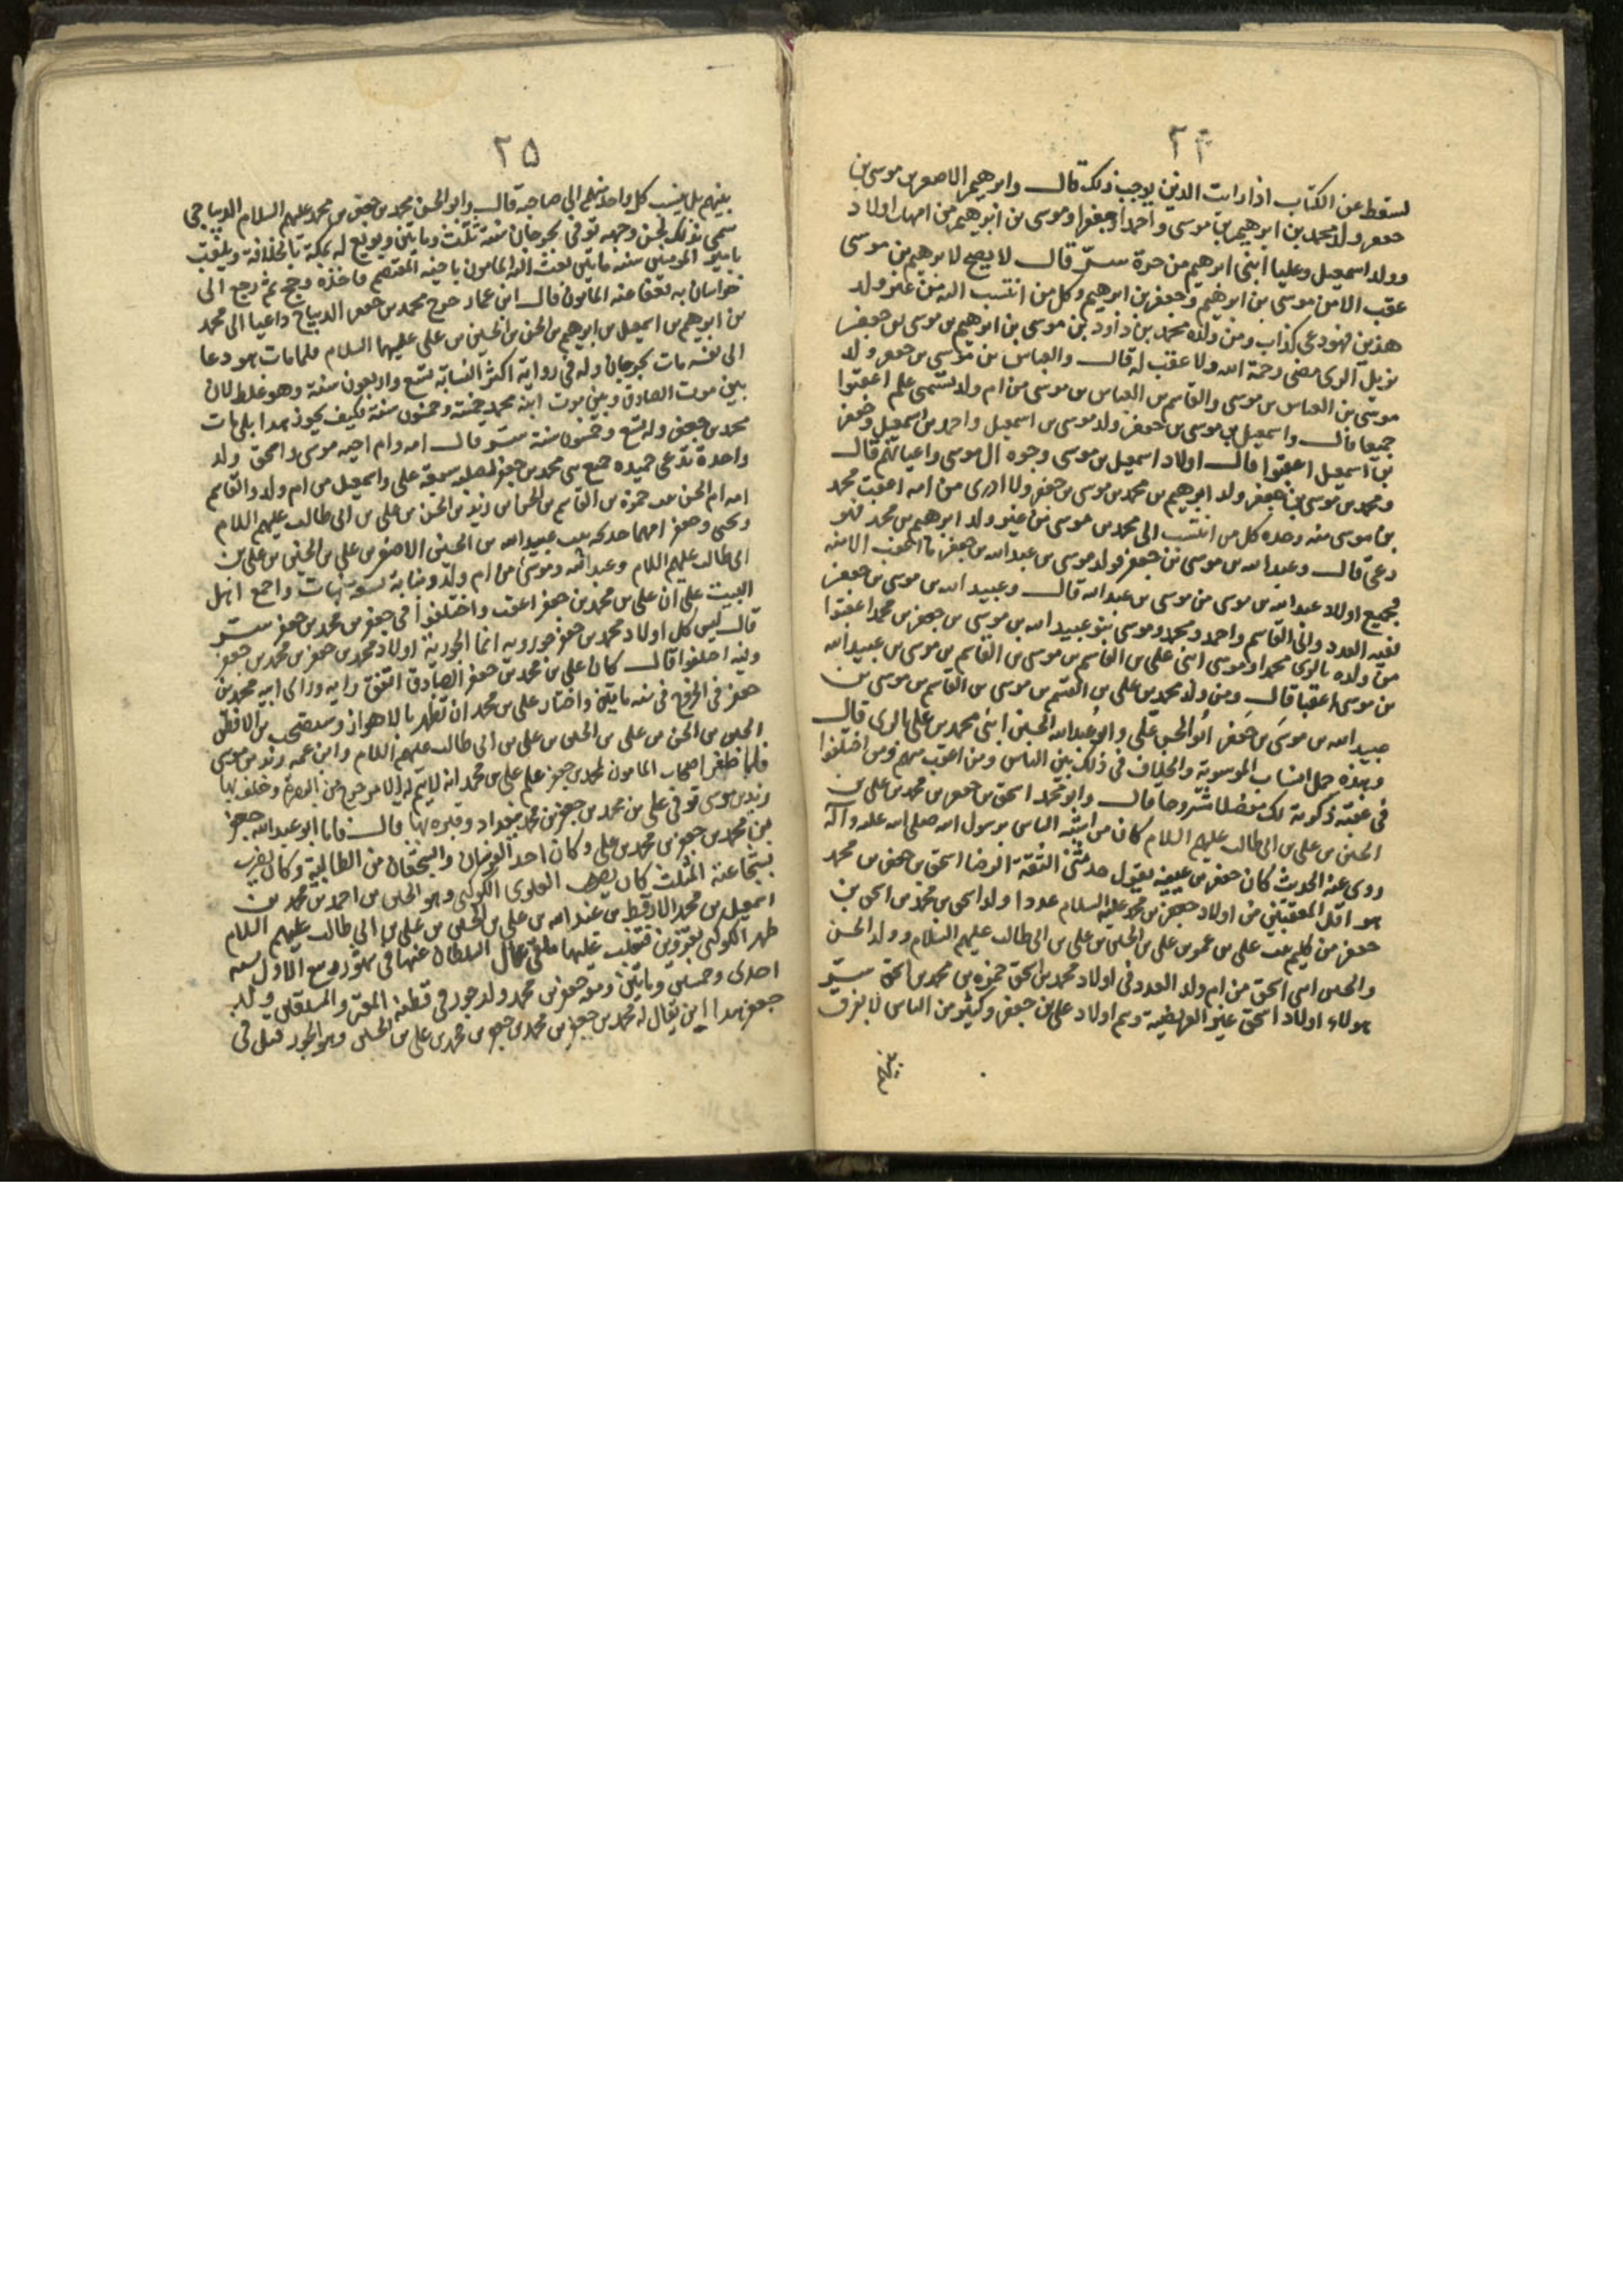 ٢٤
لسقط عن الكتاب اذا رايت الدين يوجب ذلك قال وابرهيم الاصغر بن موسى بن
جعفر ولد محمد بن ابرهيم بن موسى واحمد او جعفرا وموسى بن ابرهيم من امهات اولاد
وولد اسمعيل وعليا ابنى ابرهيم من حرة قال لا يصح لابرهيم بن موسى
عقب الا من موسى بن ابرهيم وجعفر بن ابرهيم وكل من انتسب اليه من غير ولد
هذين فهو دعى كذاب ومن ولده محمد بن داود بن موسى بن ابرهيم بن موسى بن جعفر
نزيل الرى مضى رحمة الله ولا عقب له قال والعباس بن موسى بن جعفر ولد
موسى بن العباس بن موسى والقاسم بن العباس بن موسى من ام ولد اعقبوا
جميعا قال واسمعيل بن موسى بن جعفر ولد موسى بن اسمعيل واحمد بن اسمعيل وجعفر
بن اسمعيل اعقبوا قال اولاد اسمعيل بن موسى وجوه ال موسى واعيانهم قال
ومحمد بن موسى بن جعفر ولد ابرهيم بن محمد بن موسى بن جعفر ولا ادرى من امه اعقب محمد
بن موسى منه وحده كل من انتسب الى محمد بن موسى من غير ولد ابرهيم بن محمد فهو
دعى قال وعبد الله بن موسى بن جعفر فولد موسى بن عبد الله بن جعفر ما اعقب الا منه
فجميع اولاد عبد الله بن موسى من موسى بن عبد الله قال وعبيد الله بن موسى بن جعفر
ففيه العدد والقاسم واحمد ومحمد وموسى بنو عبيد الله بن موسى بن جعفر بن محمد اعقبوا
من ولده بالرى محمدا وموسى ابنى على بن القاسم بن موسى بن القاسم بن موسى بن عبيد الله
بن موسى اعقبا قال ومن ولد محمد بن على بن القسم بن موسى بن القاسم بن موسى بن
عبيد الله بن موسى بن جعفر ابو الحسن على وابو عبد الله الحسين ابنى محمد بن على بالرى قال
وبهذه جمل انساب الموسوية والخلاف فى ذلك بين الناس ومن اعقب منهم ومن اختلفوا
فى عقبه ذكرته لك مفصلا مشروحا قال وابو محمد اسحق بن جعفر بن محمد بن على بن
الحسين بن على بن ابى طالب عليهم السلام كان من اشبه الناس برسول الله صلى الله عليه وآله
روى عنه الحديث كان جعفر بن عيينه يقول حدثنى الثقة الرضا اسحق بن جعفر بن محمد
هو اقل المعقبين من اولاد جعفر بن محمد عليه السلام عددا ولد اسحق بن محمد بن اسحق بن
جعفر من كليم بنت على بن عمر بن على بن الحسين بن على بن ابى طالب عليهم السلام وولد الحسن
والحسين ابنى اسحق من ام ولد العدد فى اولاد محمد بن اسحق حمزه بن محمد بن اسحق
هولاء اولاد اسحق غير العريضية وهم اولاد على بن جعفر وكثير من الناس لا يفرق
بينهم
٢٥
بينهم بل ينسب كل واحد منهم الى صاحبه قال وابو الحسن محمد بن جعفر بن محمد عليهم السلام الديباجى
سمى بذلك لحسن وجهه توفى بجرجان سنة ثلث ومايتين وبويع له بمكة بالخلافة ويلقب
بامير المومنين سنة مايتين بعث اليه المامون باخيه المعتصم فاخذه وحج ثم رجع الى
خراسان به فعفا عنه المامون قال ابن عمار خرج محمد بن جعفر الديباج داعيا الى محمد
بن ابرهيم بن اسمعيل بن ابرهيم بن الحسن بن الحسين بن على عليهما السلام فلما مات هو دعا
الى نفسه مات بجرجان وله فى رواية اكثر النسابة تسع واربعون سنة وهو غلط لان
بين موت الصادق وبين موت ابنه محمد خمسة وخمسون سنة فكيف يجوز هذا بلى مات
محمد بن جعفر وله تسع وخمسون سنة قال امه وام اخيه موسى واسحق ولد
واحدة تدعى حميده جميع بنى محمد بن جعفر لصلبه سبعة على واسمعيل من ام ولد والقاسم
امه ام الحسن بنت حمزه بن القاسم بن الحسن بن زيد بن الحسن بن على بن ابى طالب عليهم السلام
ويحيى وجعفر امهما خديجه بنت عبيد الله بن الحسين الاصغر بن على بن الحسين بن على بن
ابى طالب عليهم السلام وعبد الله وموسى من ام ولد وبنات واجمع اهل
البيت على ان على بن محمد بن جعفر اعقب واختلفوا فى جعفر بن محمد بن جعفر
قال ليس كل اولاد محمد بن جعفر جوريه انما الجورية اولاد محمد بن جعفر بن محمد بن جعفر
وفيه اختلفوا قال كان على بن محمد بن جعفر الصادق اتفق رايه وراى ابيه محمد بن
جعفر فى الخروج فى سنه مايتين واختار على بن محمد ان تظهر بالاهواز بن الافطس
الحسن بن على بن الحسين بن على بن ابى طالب عليهم السلام وابن عمه زيد بن موسى
فلما ظفر اصحاب المامون لمحمد بن جعفر علم على بن محمد انه لا يتم له الامر خرج من البصره وخلف بها
زيد بن موسى توفى على بن محمد بن جعفر بن محمد ببغداد وقبره بها قال فاما ابو عبد الله جعفر
بن محمد بن جعفر بن محمد بن على وكان احد الفرسان والشجعان من الطالبية وكان يضرب
بشجاعته المثلث كان العلوى الكوكبى وهو الحسين بن احمد بن محمد بن
اسمعيل بن محمد الارقط بن عبد الله بن على بن الحسين بن على بن ابى طالب عليهم السلام
ظهر الكوكبى بقزوين فتغلب عليها عمال السلطان عنها فى شهر ربيع الاول سنه
احدى وخمسين ومايتين ومعه جعفر بن محمد ولد جور فى المعتز والمستعين ولد
جعفر هذا ابن يقال له محمد بن جعفر بن محمد بن جعفر بن محمد بن على بن الحسين وهو الجور قتل فى